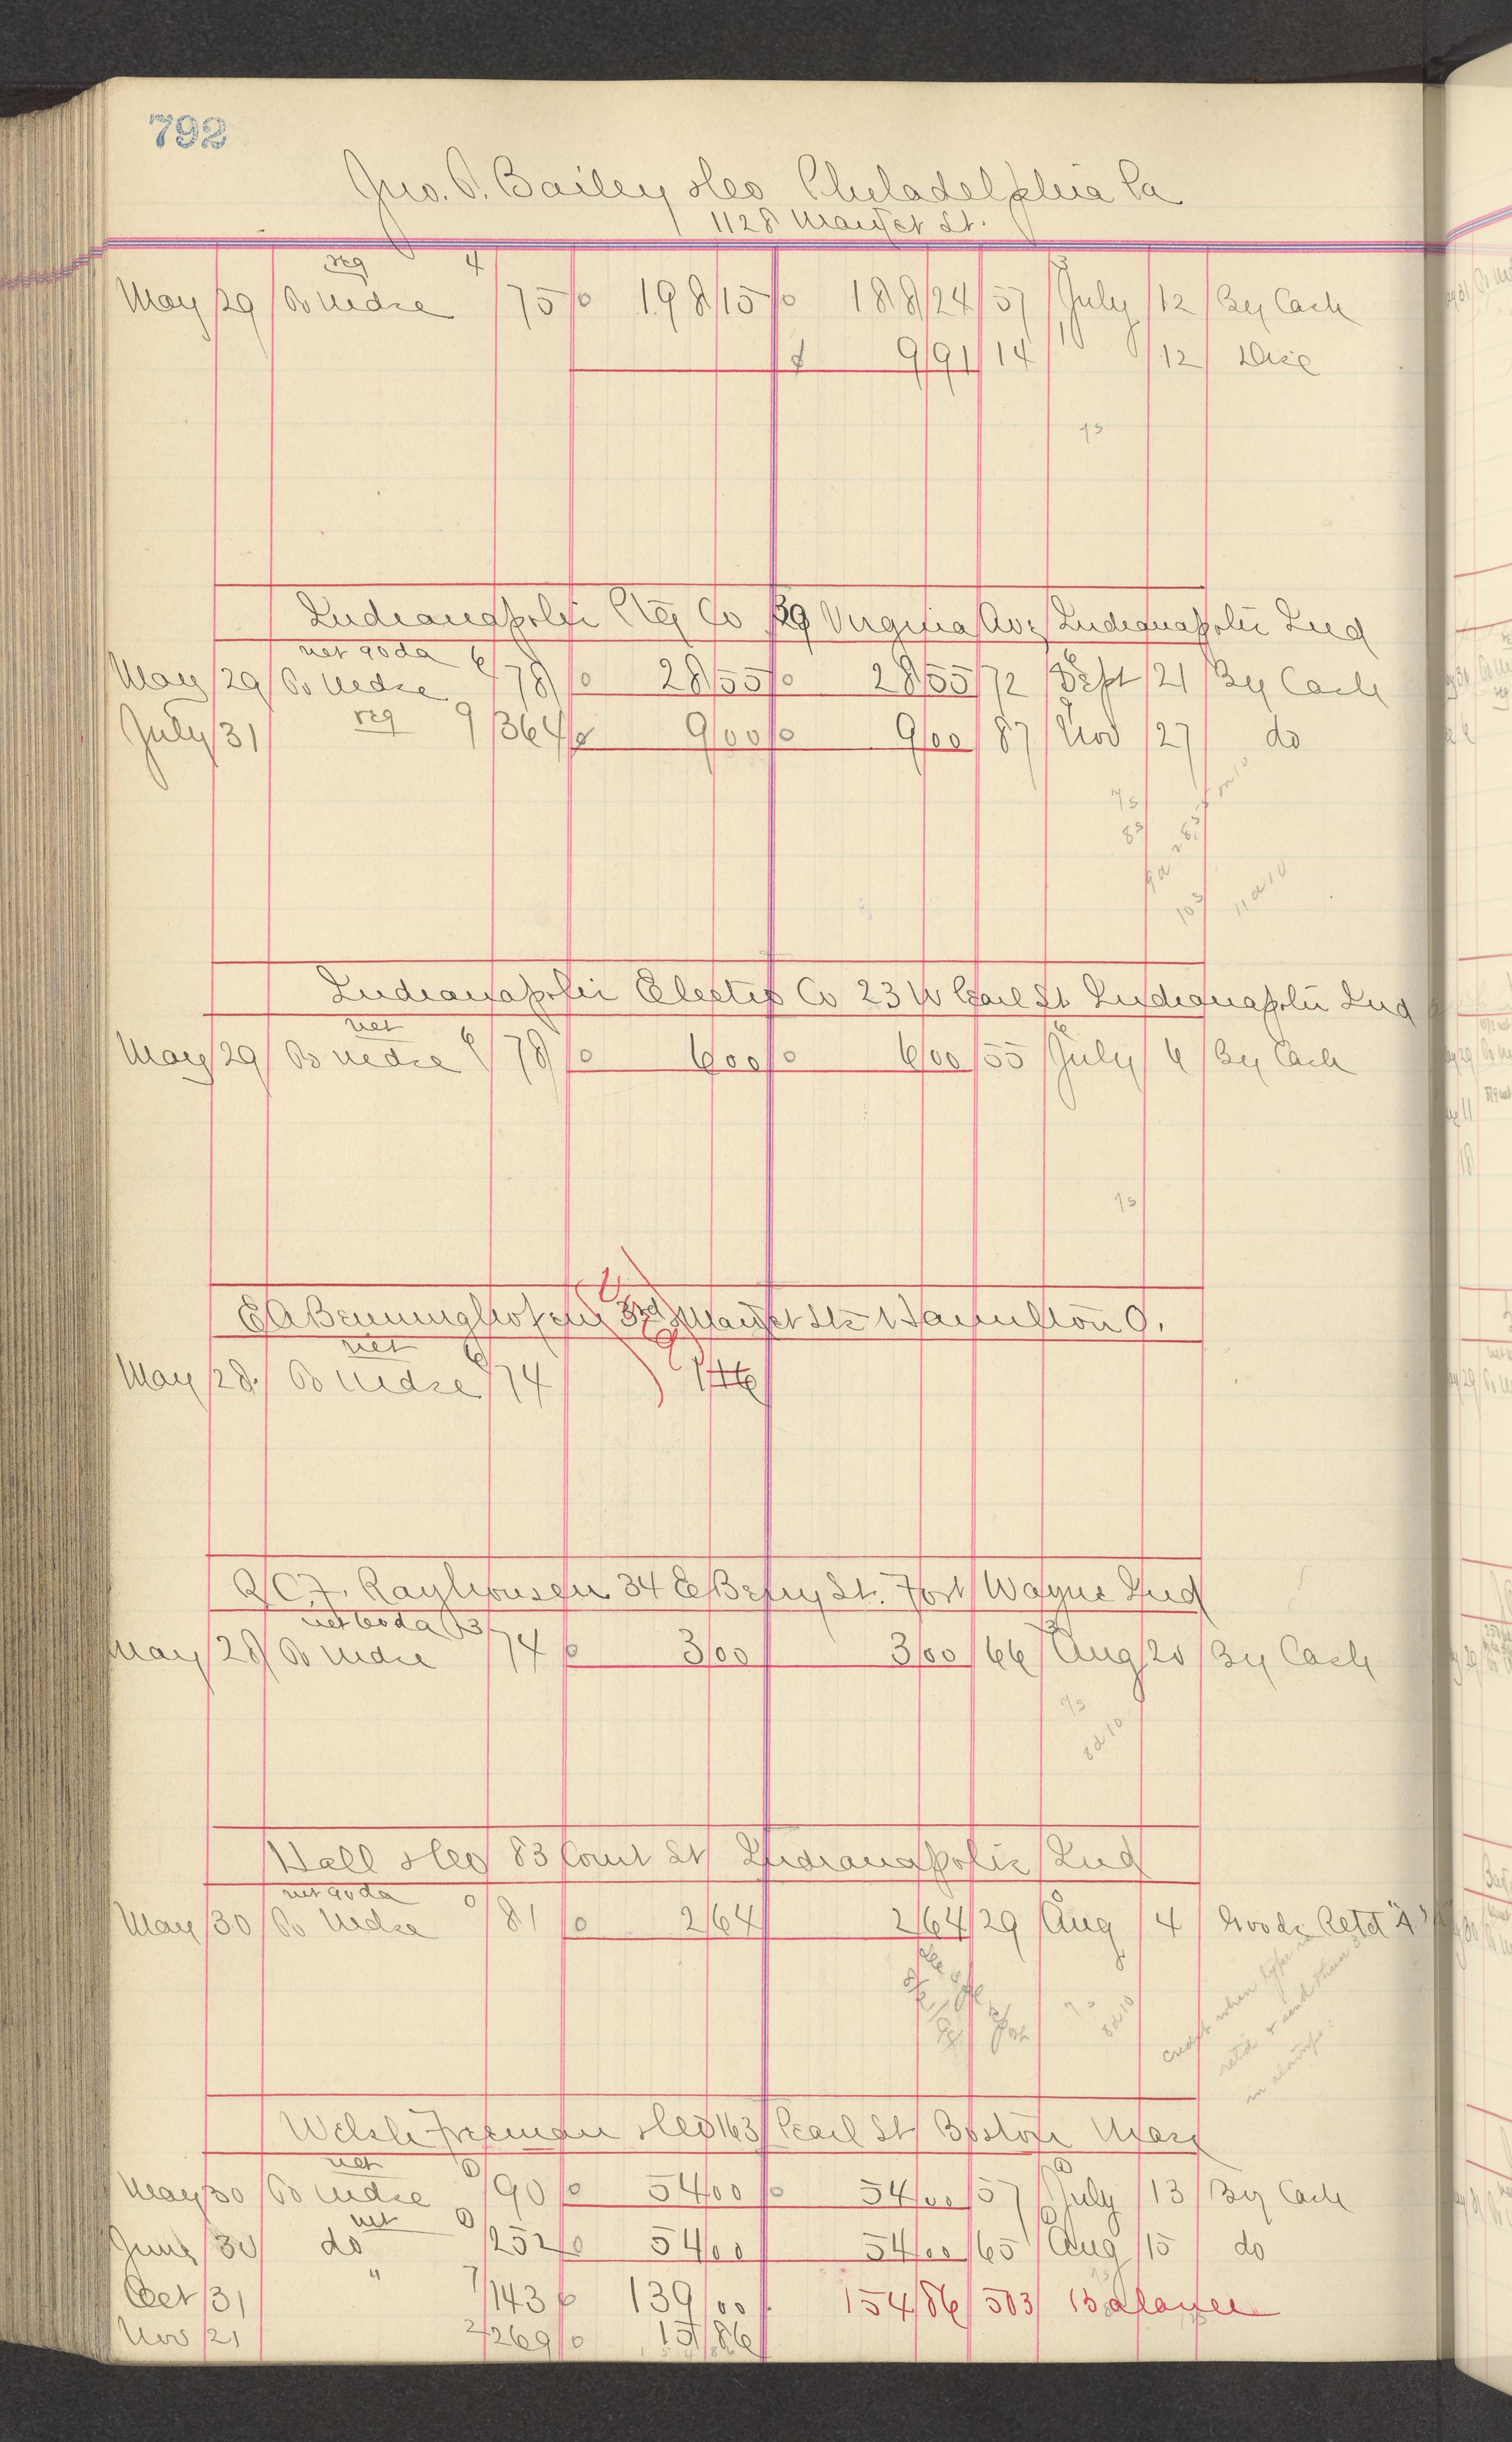 792
Jno. P. Bailey & Co Philadelphia Pa
1128 Market St.
reg 4
May 29 To Mdse 75 198 15 188 24 57 July 12 By Cash
9 91 14 12 Disc
7s
Indianapolis Co 39 Virginia Ave Indianapolis Ind
net 90 da 6
May 29 To Mdse 78 28 55 28 55 72 Sept 21 By Cash
July 31 reg 9 364 9 00 9 00 87 Nov 27 do
7s
8s
10s 11 d 10
Indianapolis Electro Co 23 W Pearl St Indianapolis Ind
net 6
May 29 To Mdse 78 6 00 6 00 55 July 6 By Cash
7s
E A Benninghofen 3rd & Market Sts Hamilton O.
net 6
May 28 To Mdse 74 1 46
C. F. Rayhouser 34 E Berry St. Fort Wayne Ind
net 60 da 13
May 28 To Mdse 74 3 00 3 00 66 Aug 20 By Cash
7s
8 d 10
Hall & Co 83 Court St Indianapolis Ind
net 90 da 0
May 30 To Mdse 81 2 64 2 64 29 Aug 4 Goods Retd "A"
7s
8 d 10
credit when type
retd & send them
in stamps.
Welsh Freeman & Co 163 Pearl St Boston Mass
net 0
May 30 To Mdse 90 54 00 54 00 57 July 13 By Cash
net 0
June 30 do 252 54 00 54 00 65 Aug 15 do
Oct 31 " 7 143 139 00 154 86 503 Balance
Nov 21 2 269 15 86